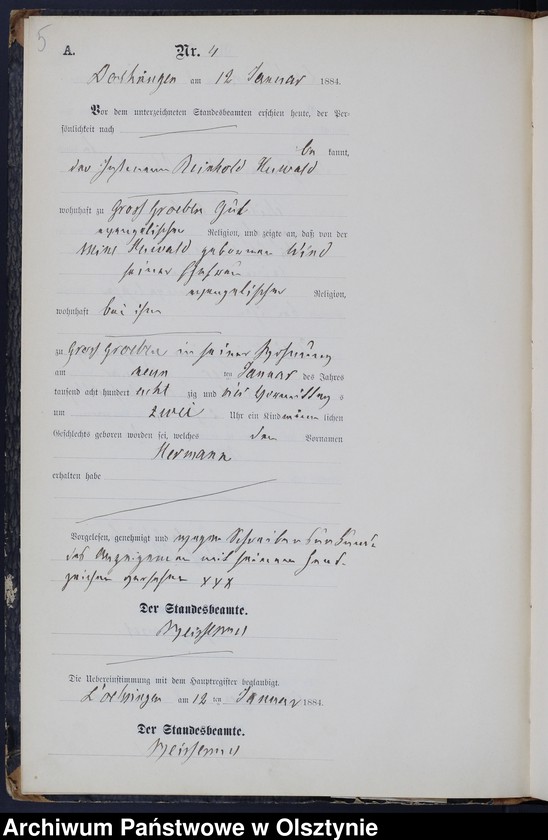 5
A. Nr. 4
am 12 Januar 1884.
Vor dem unterzeichneten Standesbeamten erschien heute, der Per-
sönlichkeit nach
be kannt,
der Reinhold
wohnhaft zu Gross Groeben Gut
evangelischer Religion, und zeigte an, daß von der
geborenen Wind
seiner Ehefrau
evangelischer Religion,
wohnhaft bei ihm
zu Gross Groeben in seiner Wohnung
am neun ten Januar des Jahres
tausend acht hundert acht zig und vier Vormittag s
um zwei Uhr ein Kind männ lichen
Geschlechts geboren worden sei, welches den Vornamen
Hermann
erhalten habe
Vorgelesen, genehmigt und wegen Schreibensunkunde
des Anzeigenden mit seinem Hand-
zeichen versehen xxx
Der Standesbeamte.
Die Uebereinstimmung mit dem Hauptregister beglaubigt.
am 12 ten Januar 1884.
Der Standesbeamte.
Archiwum Państwowe w Olsztynie